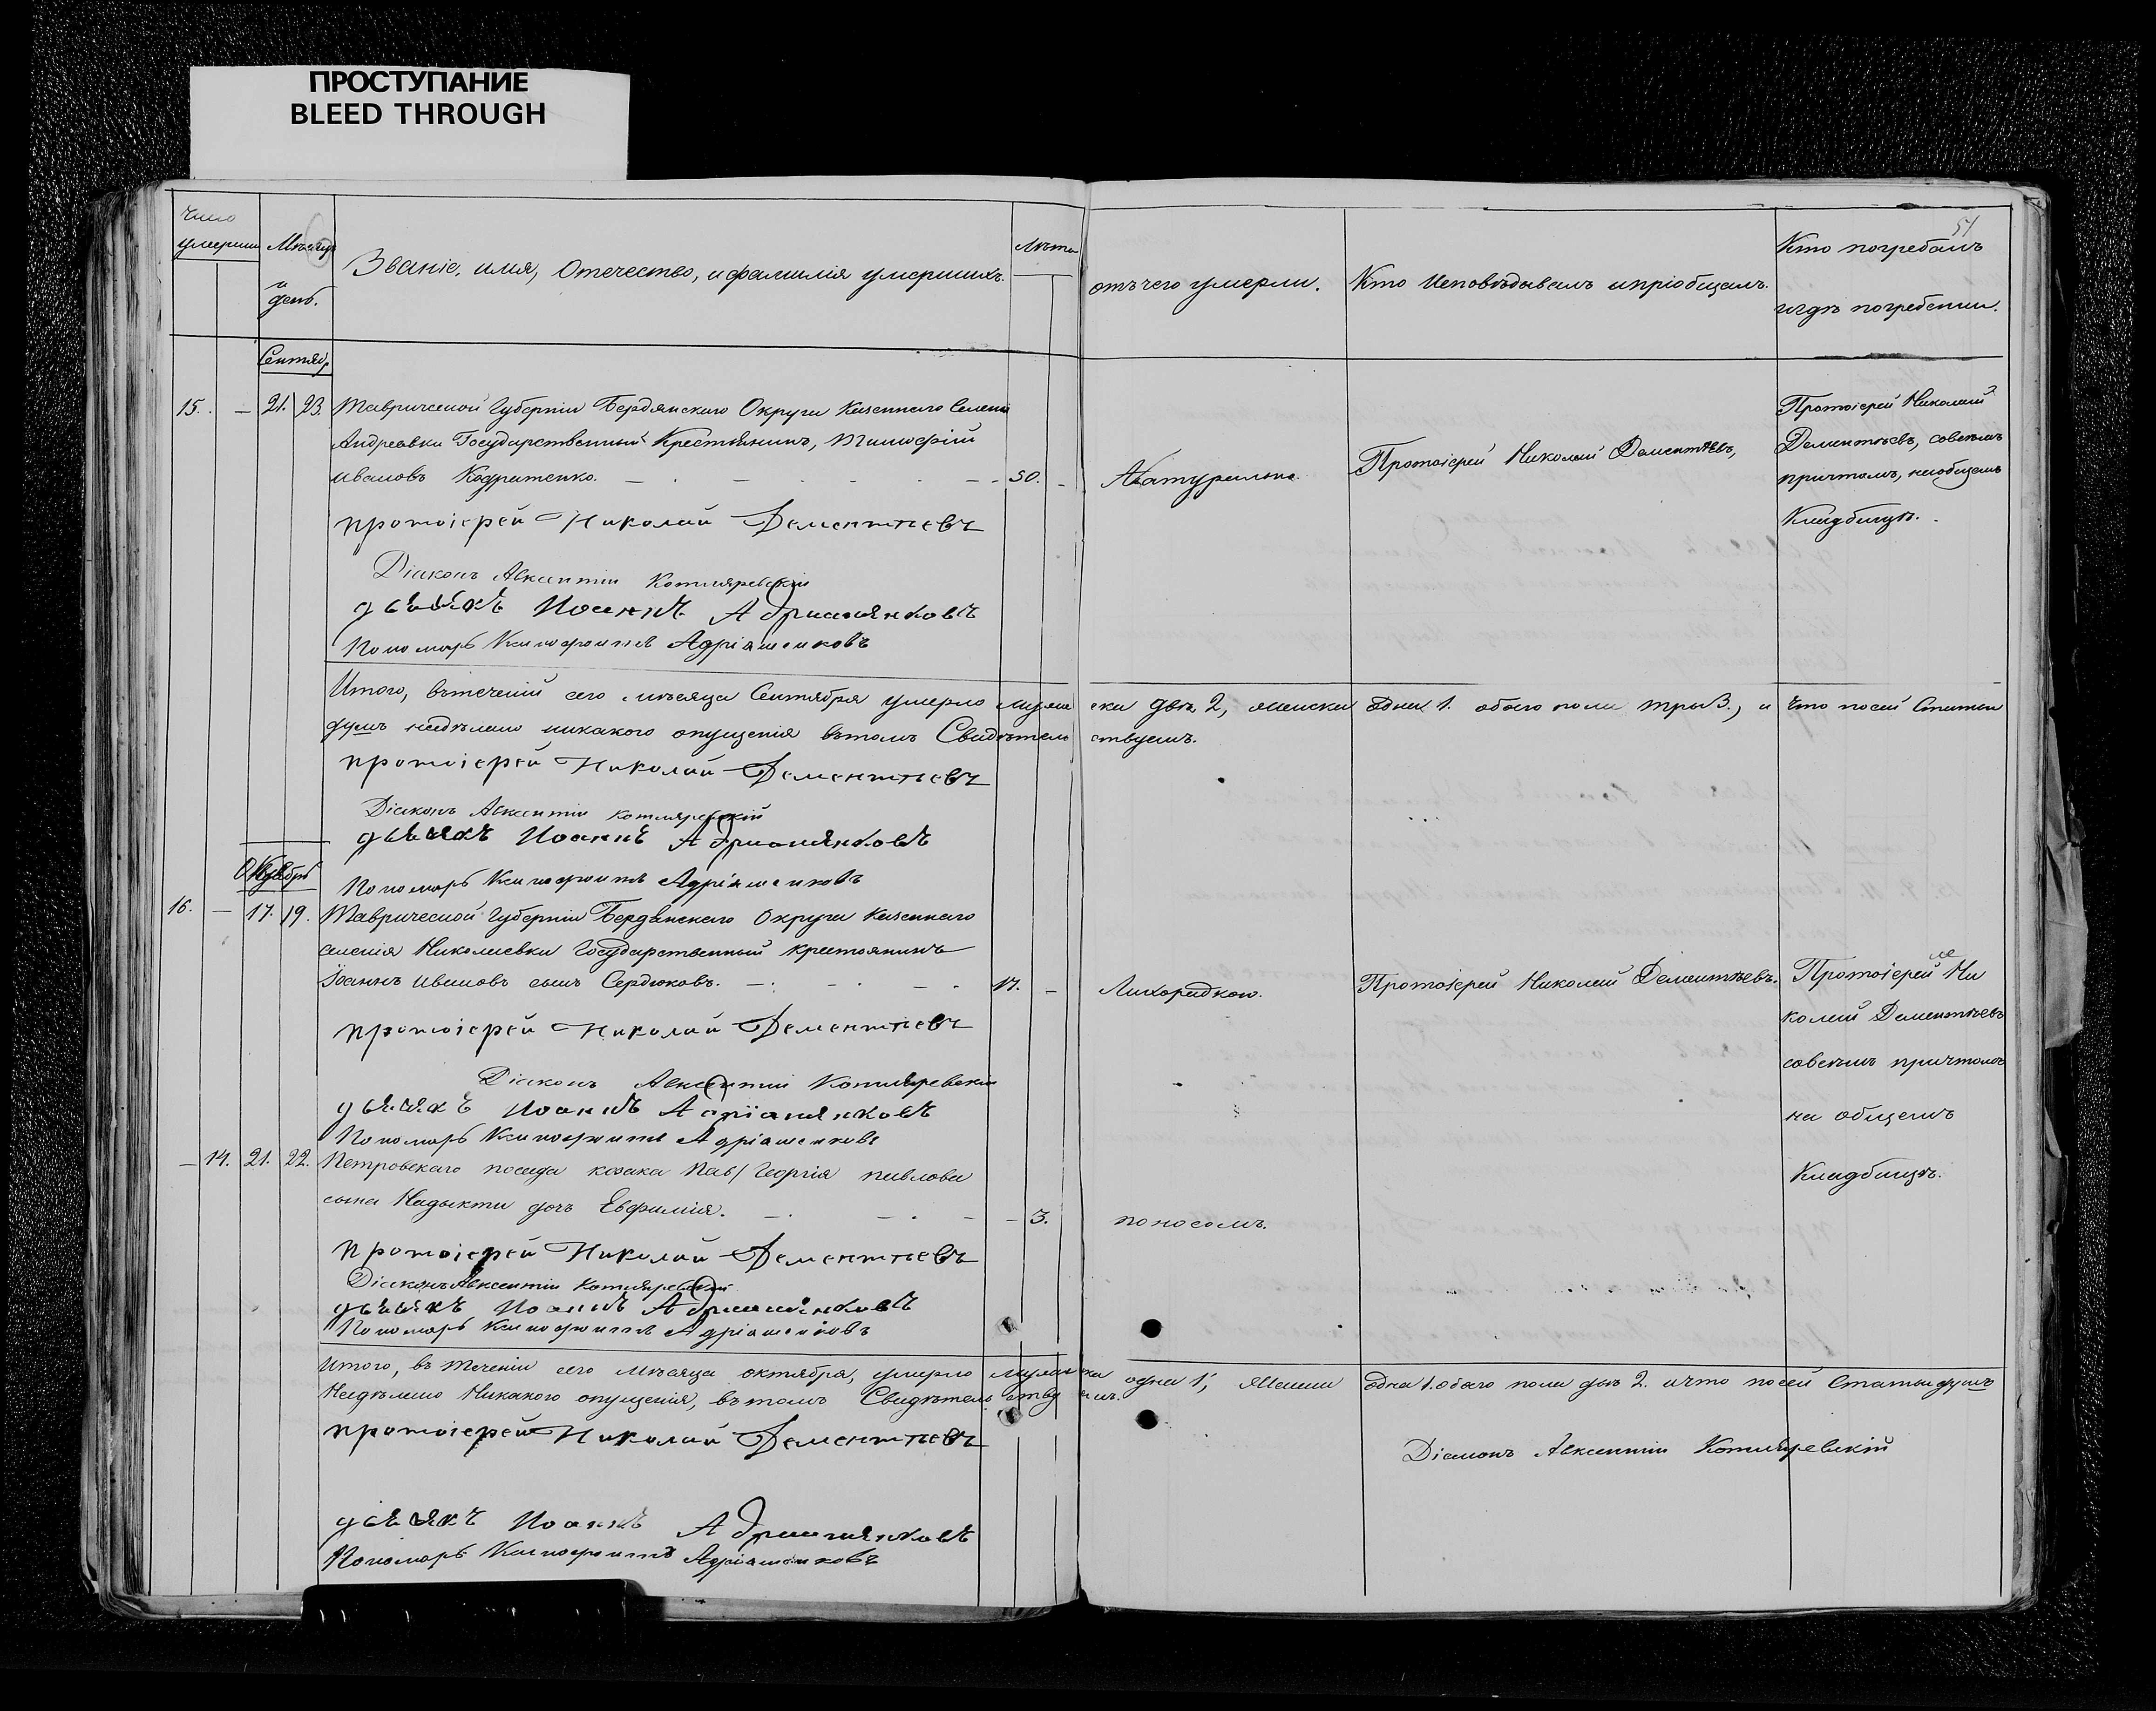 ПРОСТУПАНИЕ
BLEED THROUGH
51
Число умерших
Мѣсяцъ и день.
Званіе, имя, Отечество, и фамилія умершихъ.
Лѣта
отъ чего умерли.
Кто Исповѣдывалъ и пріобщалъ.
Кто погребалъ
и гдѣ погребенны.
Сентябр
15. — 21. 23. Таврической Губерніи Бердянскаго Округа Казеннаго Селенія
Андреевки Государственный Крестьянинъ, Тимофій
Ивановъ Кодратенко. 50.
Натурально.
Протоіерей Николай Дементьевъ,
Протоіерей Николай
Дементьевъ, совсѣмъ
причтомъ, наобщемъ
Кладбищѣ.
протоіерей Николай Дементіевъ
Діаконъ Авксентій Котляревскій
дьячекъ Иоаннъ Адріашенковъ
Пономарь Ксенофонтъ Адріашенковъ
Итого, втеченій сего мѣсяца Сентября умерло мужеска двѣ 2, женска одна 1. обоего пола три 3., и что посей Статьи
душъ несдѣлано никакого опущенія втомъ Свидѣтельствуемъ.
протоіерей Николай Дементіевъ
Діаконъ Авксентій Котляревскій
дьячекъ Иоаннъ Адріашенковъ
Пономарь Ксенофонтъ Адріашенковъ
Октябрь
16. — 17. 19. Таврической Губерніи Бердянскаго Округа Казеннаго
селенія Николаевки Государственный крестьянинъ
Іоаннъ Ивановъ сынъ Сердюковъ. 17.
Лихорадкою.
Протоіерей Николай Дементьевъ.
Протоіерей Ни
колай Дементьевъ
совсѣмъ причтомъ
на общемъ
Кладбищѣ.
протоіерей Николай Дементіевъ
Діаконъ Авксентій Котляревскій
дьячекъ Иоаннъ Адріашенковъ
Пономарь Ксенофонтъ Адріашенковъ
— 14. 21. 22. Петровскаго посада козака Георгія павлова
сына Надыкти дочь Евфимія. 3.
поносомъ.
протоіерей Николай Дементіевъ
Діаконъ Авксентій Котляревскій
дьячекъ Иоаннъ Адріашенковъ
Пономарь Ксенофонтъ Адріашенковъ
Итого, въ теченіи сего мѣсяца октября, умерло мужеска одна 1, женска одна 1. обоего пола двѣ 2. и что посей Статьи душъ
Несдѣлано Никакого опущенія, въ томъ Свидѣтельствуемъ.
протоіерей Николай Дементіевъ
Діаконъ Авксентій Котляревскій
дьячекъ Иоаннъ Адріашенковъ
Пономарь Ксенофонтъ Адріашенковъ